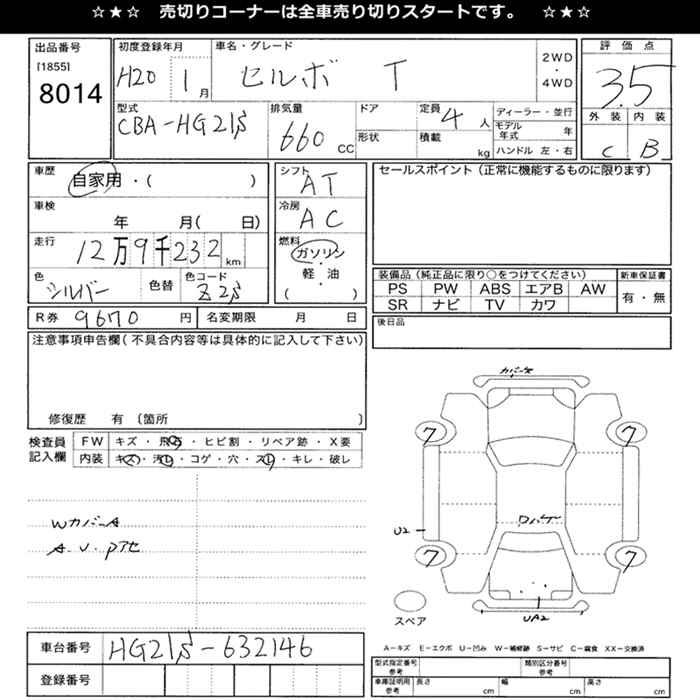 ☆★☆ 売切りコーナーは全車売り切りスタートです。 ☆★☆
出品番号 [1855] 8014
初度登録年月 H20 1月
車名・グレード セルボ T
2WD・4WD
評価点 3.5
外装 C 内装 B
型式 CBA-HG21S
排気量 660 CC
ドア
形状
定員 4人
積載 kg
ディーラー・並行
モデル年式 年
ハンドル 左・右
車歴 自家用・( )
シフト AT
セールスポイント(正常に機能するものに限ります)
車検 年 月( 日)
冷房 AC
走行 12万9千232km
燃料 ガソリン・軽・油 ( )
色 シルバー 色替
色コード Z2S
装備品(純正品に限り○をつけてください)
PS PW ABS エアB AW
SR ナビ TV カワ
新車保証書 有・無
R券 9670円
名変期限 月 日
後日品
注意事項申告欄(不具合内容等は具体的に記入して下さい)
修復歴 有 〔箇所 〕
検査員記入欄
FW キズ・飛石・ヒビ割・リペア跡・X要
内装 キズ・汚レ・コゲ・穴・スレ・キレ・破レ
Wカバー-A
A.U.P他
カバーX
7 7
U2
7 7
UA2
スペア
車台番号 HG21S-632146
登録番号
A-キズ E-エクボ U-凹み W-補修跡 S-サビ C-腐食 XX-交換済
型式指定番号 参考
類別区分番号 参考
車庫証明用 参考 長さ cm 幅 cm 高さ cm